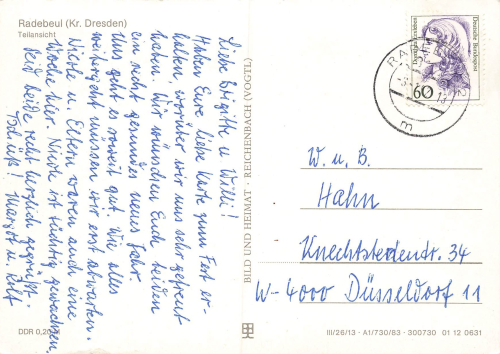 Radebeul (Kr. Dresden)
Teilansicht
Liebe Brigitte u. Willi!
Haben Eure liebe Karte zum Fest er-
halten, worüber wir uns sehr gefreut
haben. Wir wünschen Euch beiden
ein recht gesundes neues Jahr.
Uns geht es soweit gut. Wie alles
weitergeht müssen wir erst abwarten.
Nicole u. Eltern waren auch eine
Woche hier. Nicole ist tüchtig gewachsen.
Seid beide recht herzlich gegrüßt.
Tschüß! Margot u. Rolf
DDR 0,20 M
BILD UND HEIMAT · REICHENBACH (VOGTL)
Deutsche Bundespost
60
W. u. B.
Hahn
Knechtstedenstr. 34
W-4000 Düsseldorf 11
III/26/13 · A1/730/83 · 300730 01 12 0631